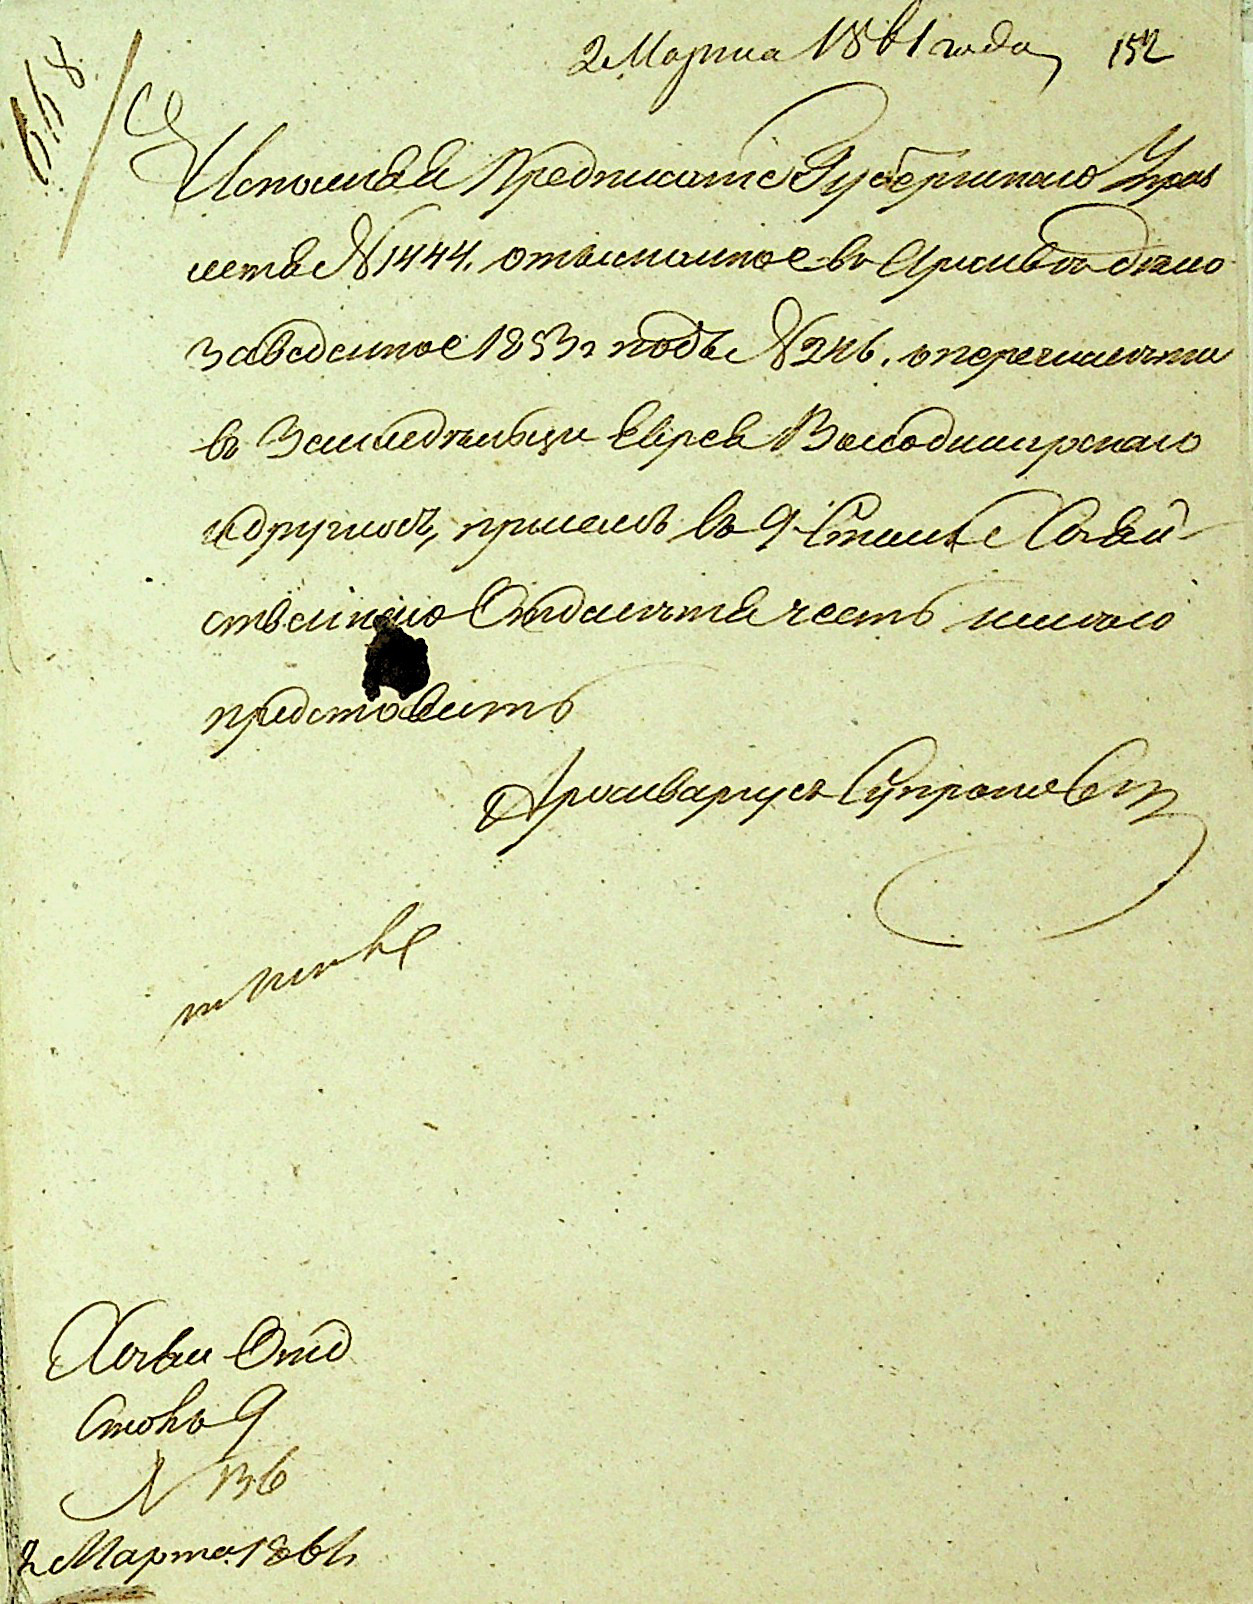 2 Марта 1861 года 152
Исполняя Предписаніе Губернскаго Прав
ленія № 1444. отысканное въ Архивѣ дѣло
заведенное 1853г подъ № 246. о перечисленіи
въ Земледѣльцы Еврея Володимирскаго
и другихъ, при семъ въ 9 Столъ Хозяй
ственнаго Отдѣленія честь имѣю
представить
Архиваріусъ Супроновичъ
Хозяи Отд
Столъ 9
N 136
2 Марта 1861